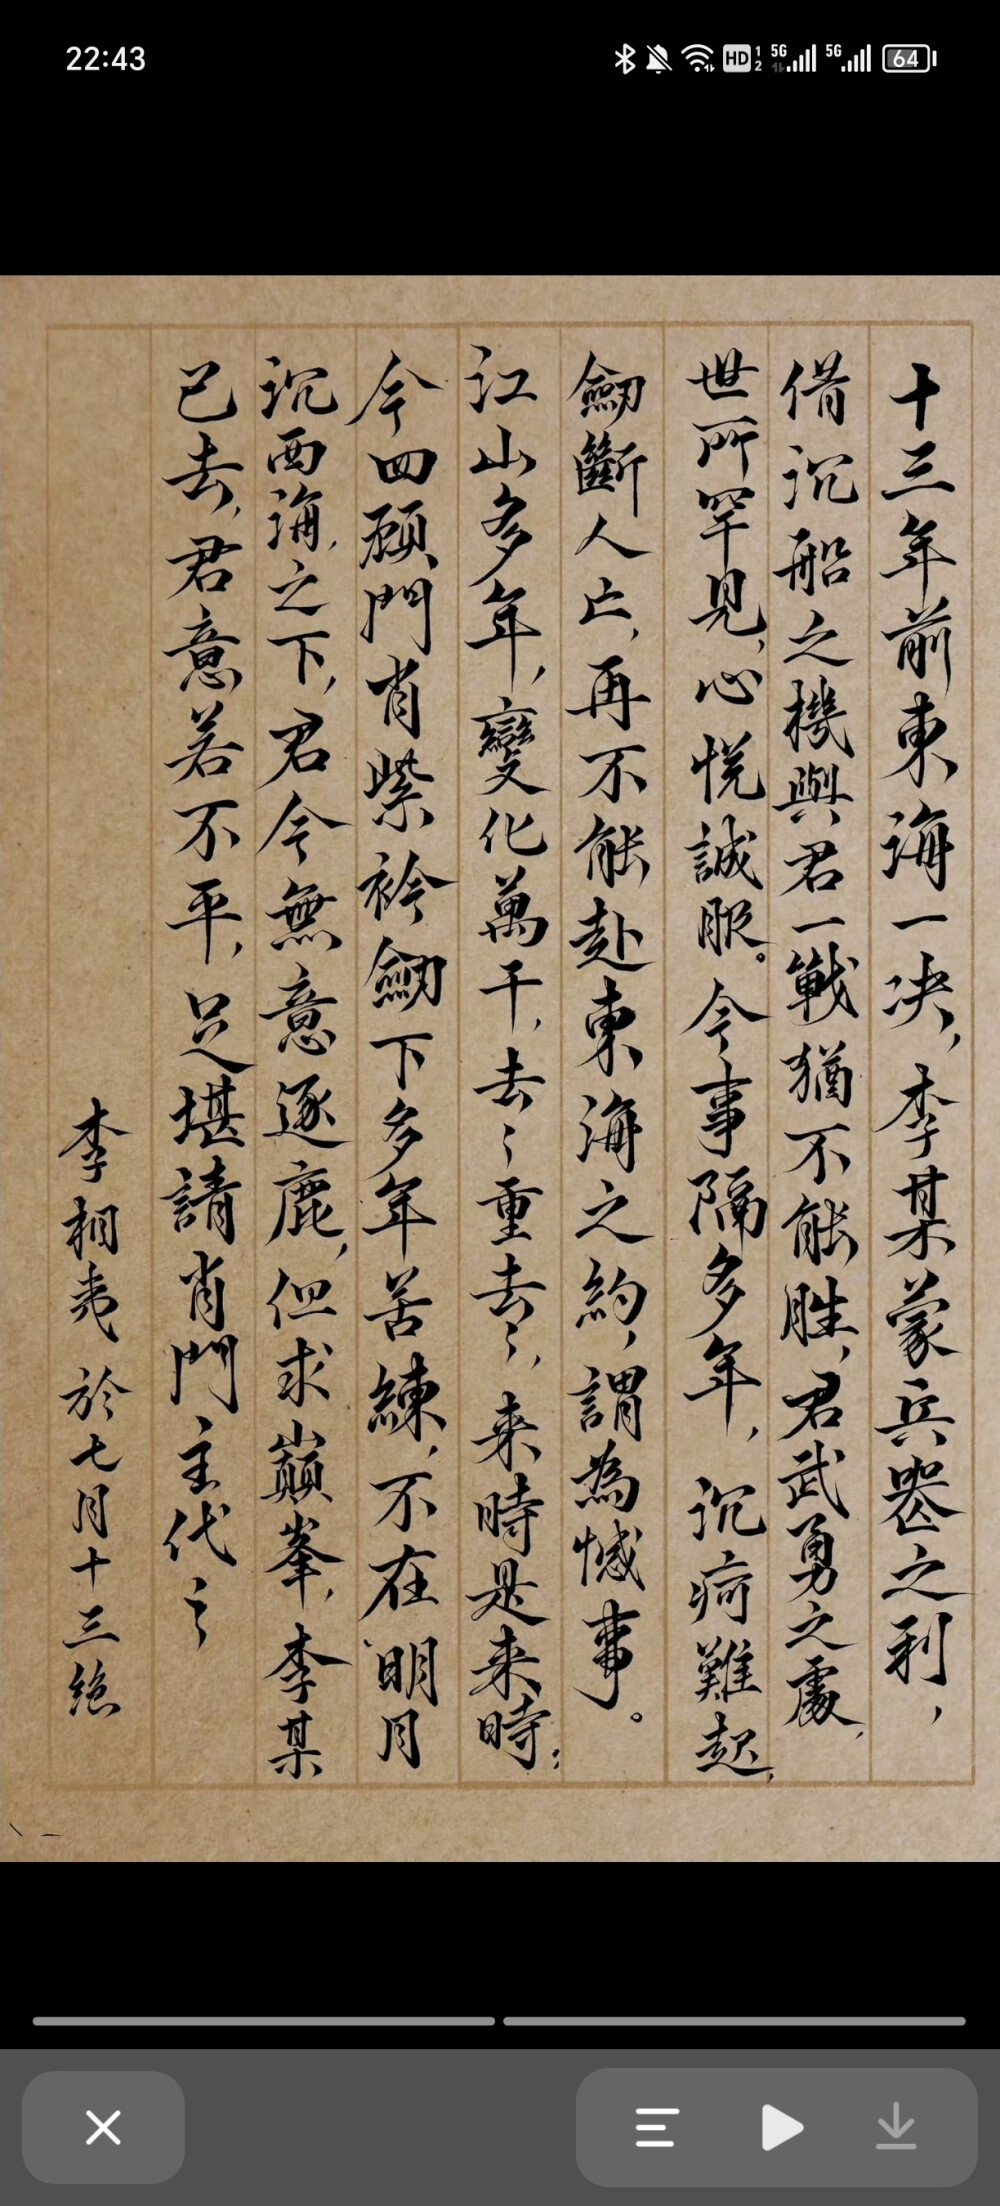 22:43
HD 1 2 5G 5G 64
十三年前東海一决，李某蒙兵器之利，
借沉船之機與君一戰猶不能胜，君武勇之處，
世所罕見，心悦誠服。今事隔多年，沉疴難起，
劒斷人亡，再不能赴東海之約，謂為憾事。
江山多年，變化萬千，去〻重去〻，来時是来時；
今四顧門肖紫衿劒下多年苦練，不在明月
沉西海之下，君今無意逐鹿，但求巔峯，李某
已去，君意若不平，足堪請肖門主代之
李相夷 於七月十三絶